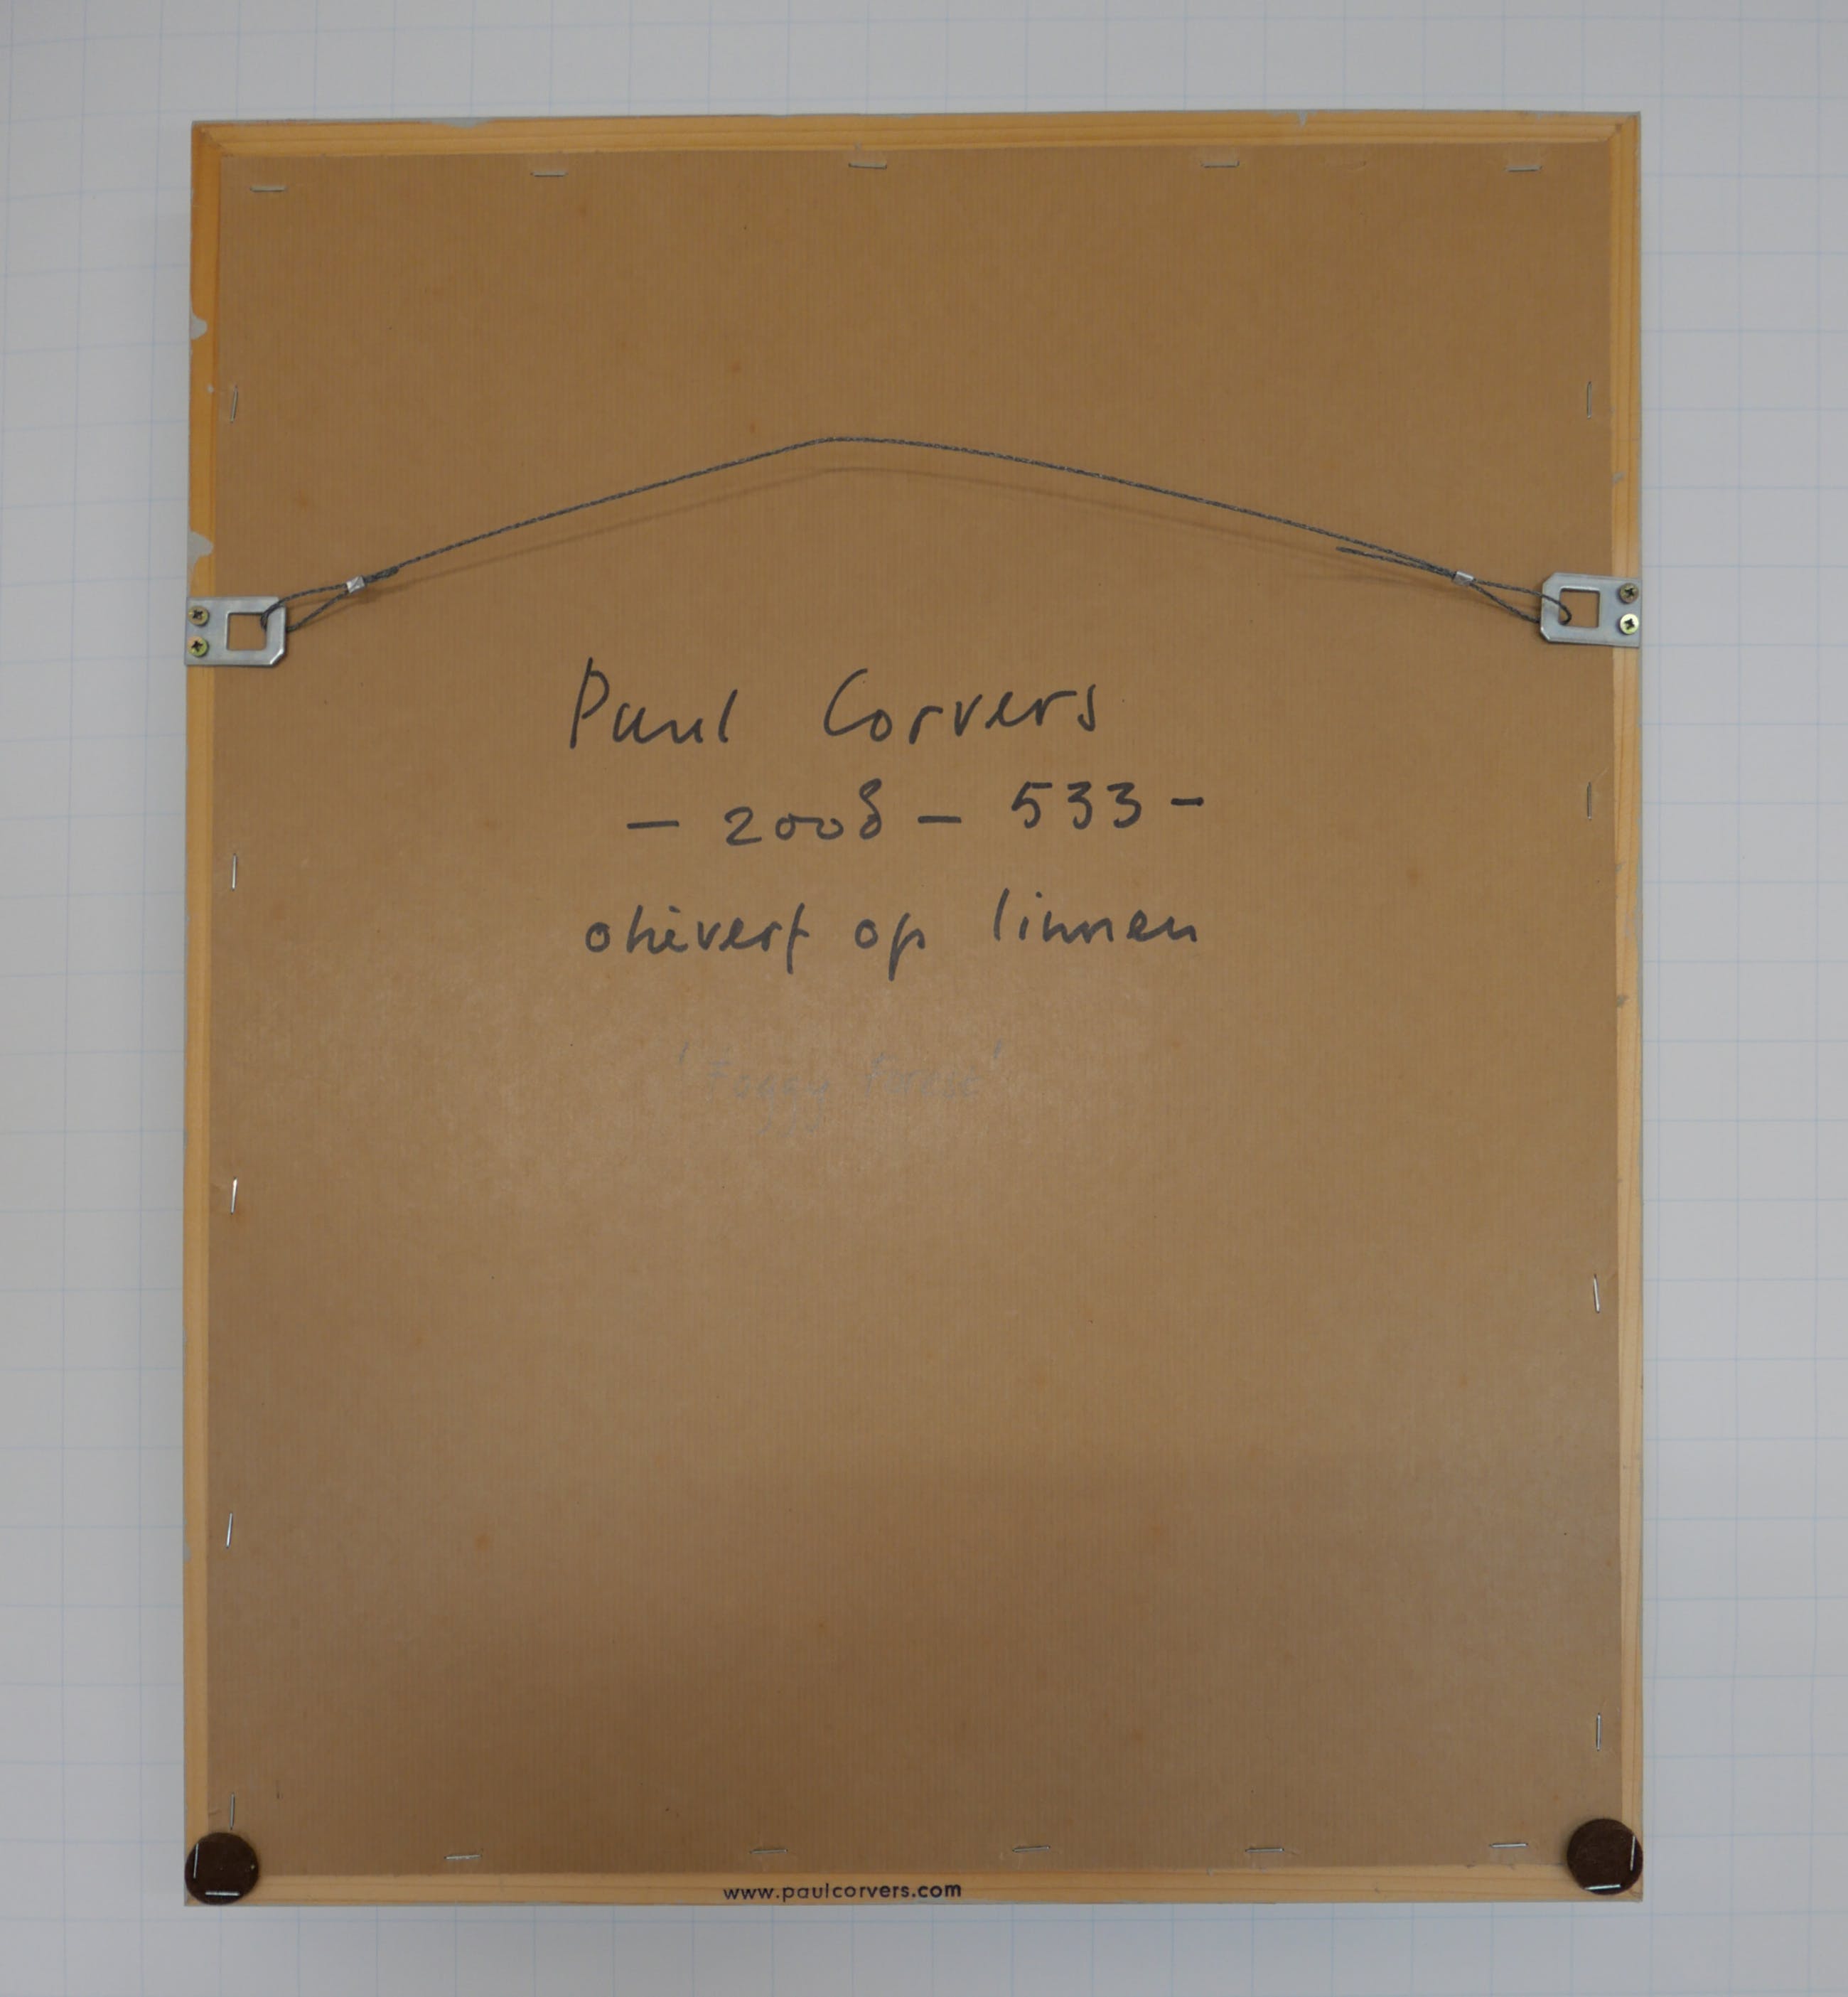 Paul Corvers
- 2008 - 533 -
olieverf op linnen
'Foggy
www.paulcorvers.com